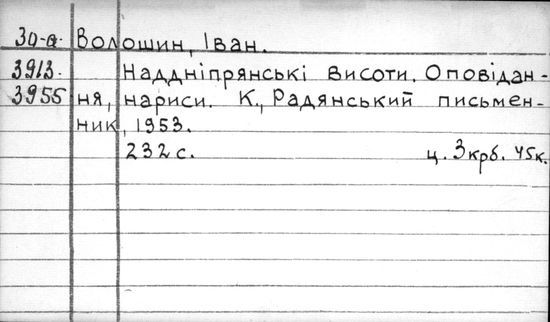 30-а Волошин, Іван.
3913. Наддніпрянські висоти. Оповідан-
3955 ня, нариси. К., Радянський письмен-
ник, 1953.
232 с. ц. 3 крб. 45 к.